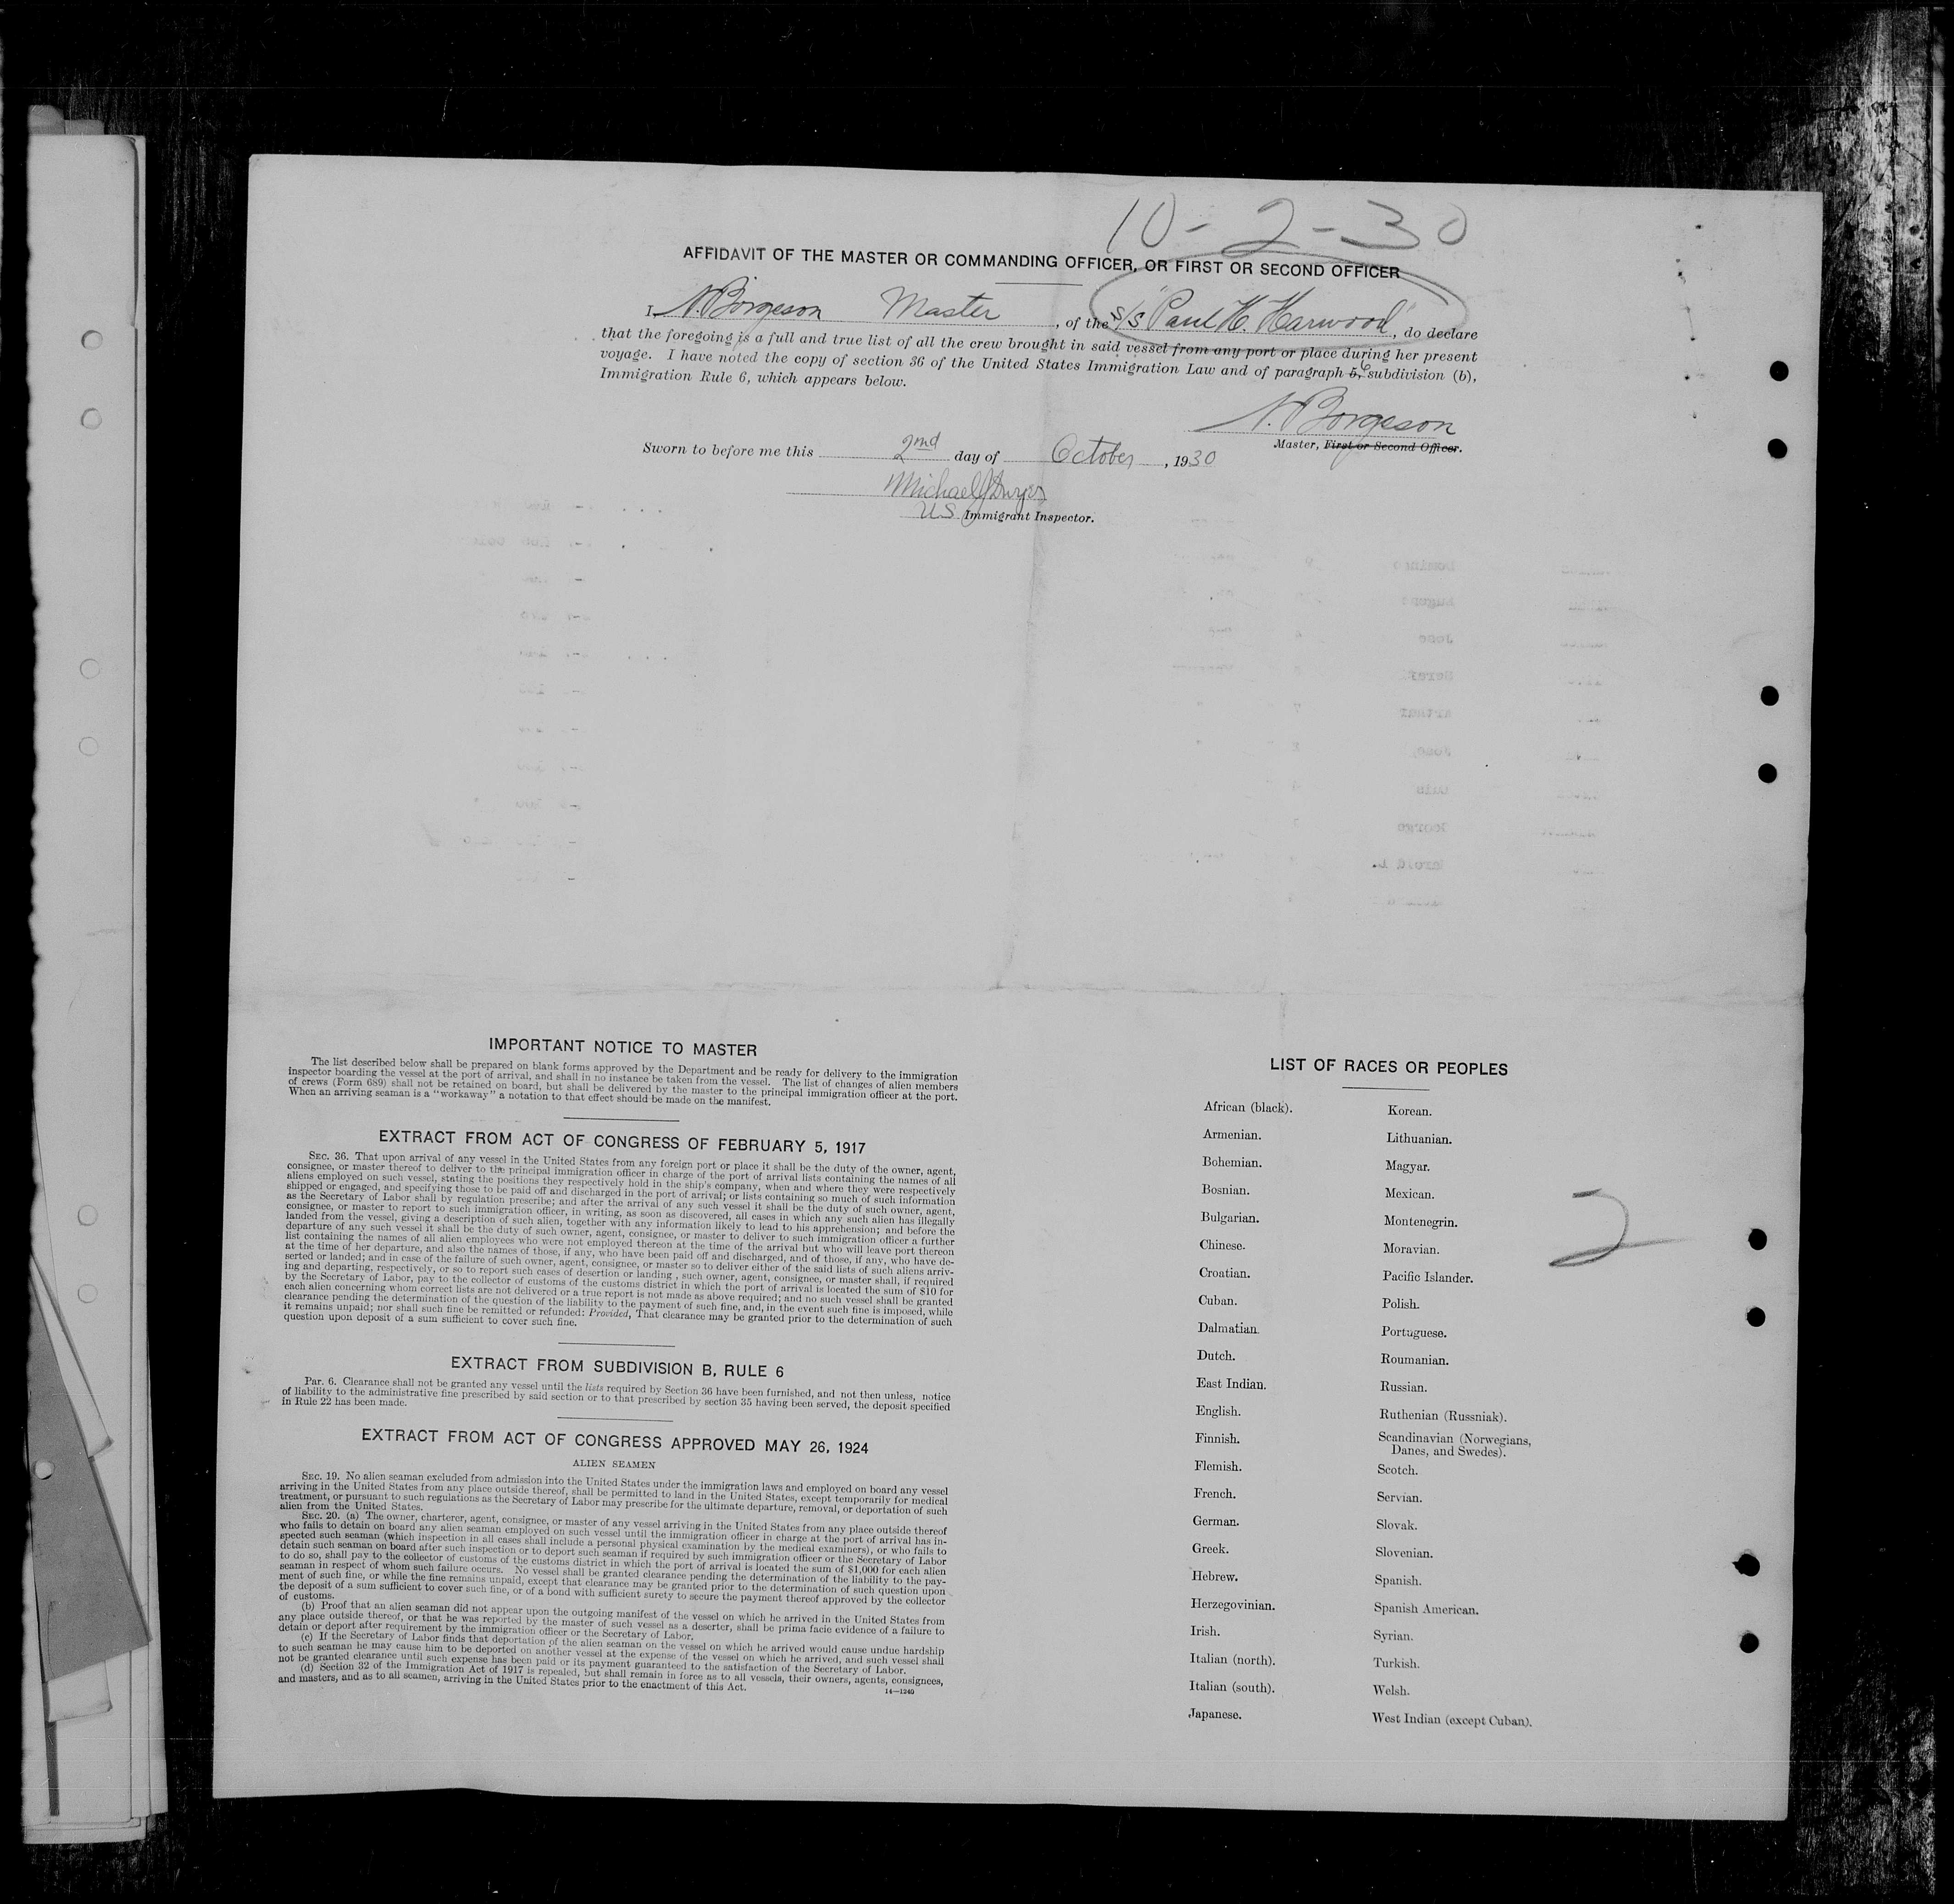 10-2-30
AFFIDAVIT OF THE MASTER OR COMMANDING OFFICER, OR FIRST OR SECOND OFFICER
I, N. Borgeson Master, of the S/S "Paul H. Harwood", do declare
that the foregoing is a full and true list of all the crew brought in said vessel from any port or place during her present
voyage. I have noted the copy of section 36 of the United States Immigration Law and of paragraph 5, 6 subdivision (b),
Immigration Rule 6, which appears below.
N. Borgeson
Master, First or Second Officer.
Sworn to before me this 2nd day of October, 1930
Michael J Dwyer
US Immigrant Inspector.
IMPORTANT NOTICE TO MASTER
The list described below shall be prepared on blank forms approved by the Department and be ready for delivery to the immigration
inspector boarding the vessel at the port of arrival, and shall in no instance be taken from the vessel. The list of changes of alien members
of crews (Form 689) shall not be retained on board, but shall be delivered by the master to the principal immigration officer at the port.
When an arriving seaman is a "workaway" a notation to that effect should be made on the manifest.
EXTRACT FROM ACT OF CONGRESS OF FEBRUARY 5, 1917
SEC. 36. That upon arrival of any vessel in the United States from any foreign port or place it shall be the duty of the owner, agent,
consignee, or master thereof to deliver to the principal immigration officer in charge of the port of arrival lists containing the names of all
aliens employed on such vessel, stating the positions they respectively hold in the ship's company, when and where they were respectively
shipped or engaged, and specifying those to be paid off and discharged in the port of arrival; or lists containing so much of such information
as the Secretary of Labor shall by regulation prescribe; and after the arrival of any such vessel it shall be the duty of such owner, agent,
consignee, or master to report to such immigration officer, in writing, as soon as discovered, all cases in which any such alien has illegally
landed from the vessel, giving a description of such alien, together with any information likely to lead to his apprehension; and before the
departure of any such vessel it shall be the duty of such owner, agent, consignee, or master to deliver to such immigration officer a further
list containing the names of all alien employees who were not employed thereon at the time of the arrival but who will leave port thereon
at the time of her departure, and also the names of those, if any, who have been paid off and discharged, and of those, if any, who have de-
serted or landed; and in case of the failure of such owner, agent, consignee, or master so to deliver either of the said lists of such aliens arriv-
ing and departing, respectively, or so to report such cases of desertion or landing, such owner, agent, consignee, or master shall, if required
by the Secretary of Labor, pay to the collector of customs of the customs district in which the port of arrival is located the sum of $10 for
each alien concerning whom correct lists are not delivered or a true report is not made as above required; and no such vessel shall be granted
clearance pending the determination of the question of the liability to the payment of such fine, and, in the event such fine is imposed, while
it remains unpaid; nor shall such fine be remitted or refunded: Provided, That clearance may be granted prior to the determination of such
question upon deposit of a sum sufficient to cover such fine.
EXTRACT FROM SUBDIVISION B, RULE 6
Par. 6. Clearance shall not be granted any vessel until the lists required by Section 36 have been furnished, and not then unless, notice
of liability to the administrative fine prescribed by said section or to that prescribed by section 35 having been served, the deposit specified
in Rule 22 has been made.
EXTRACT FROM ACT OF CONGRESS APPROVED MAY 26, 1924
ALIEN SEAMEN
SEC. 19. No alien seaman excluded from admission into the United States under the immigration laws and employed on board any vessel
arriving in the United States from any place outside thereof, shall be permitted to land in the United States, except temporarily for medical
treatment, or pursuant to such regulations as the Secretary of Labor may prescribe for the ultimate departure, removal, or deportation of such
alien from the United States.
SEC. 20. (a) The owner, charterer, agent, consignee, or master of any vessel arriving in the United States from any place outside thereof
who fails to detain on board any alien seaman employed on such vessel until the immigration officer in charge at the port of arrival has in-
spected such seaman (which inspection in all cases shall include a personal physical examination by the medical examiners), or who fails to
detain such seaman on board after such inspection or to deport such seaman if required by such immigration officer or the Secretary of Labor
to do so, shall pay to the collector of customs of the customs district in which the port of arrival is located the sum of $1,000 for each alien
seaman in respect of whom such failure occurs. No vessel shall be granted clearance pending the determination of the liability to the pay-
ment of such fine, or while the fine remains unpaid, except that clearance may be granted prior to the determination of such question upon
the deposit of a sum sufficient to cover such fine, or of a bond with sufficient surety to secure the payment thereof approved by the collector
of customs.
(b) Proof that an alien seaman did not appear upon the outgoing manifest of the vessel on which he arrived in the United States from
any place outside thereof, or that he was reported by the master of such vessel as a deserter, shall be prima facie evidence of a failure to
detain or deport after requirement by the immigration officer or the Secretary of Labor.
(c) If the Secretary of Labor finds that deportation of the alien seaman on the vessel on which he arrived would cause undue hardship
to such seaman he may cause him to be deported on another vessel at the expense of the vessel on which he arrived, and such vessel shall
not be granted clearance until such expense has been paid or its payment guaranteed to the satisfaction of the Secretary of Labor.
(d) Section 32 of the Immigration Act of 1917 is repealed, but shall remain in force as to all vessels, their owners, agents, consignees,
and masters, and as to all seamen, arriving in the United States prior to the enactment of this Act.
14—1240
LIST OF RACES OR PEOPLES
African (black).
Armenian.
Bohemian.
Bosnian.
Bulgarian.
Chinese.
Croatian.
Cuban.
Dalmatian.
Dutch.
East Indian.
English.
Finnish.
Flemish.
French.
German.
Greek.
Hebrew.
Herzegovinian.
Irish.
Italian (north).
Italian (south).
Japanese.
Korean.
Lithuanian.
Magyar.
Mexican.
Montenegrin.
Moravian.
Pacific Islander.
Polish.
Portuguese.
Roumanian.
Russian.
Ruthenian (Russniak).
Scandinavian (Norwegians,
Danes, and Swedes).
Scotch.
Servian.
Slovak.
Slovenian.
Spanish.
Spanish American.
Syrian.
Turkish.
Welsh.
West Indian (except Cuban).
2